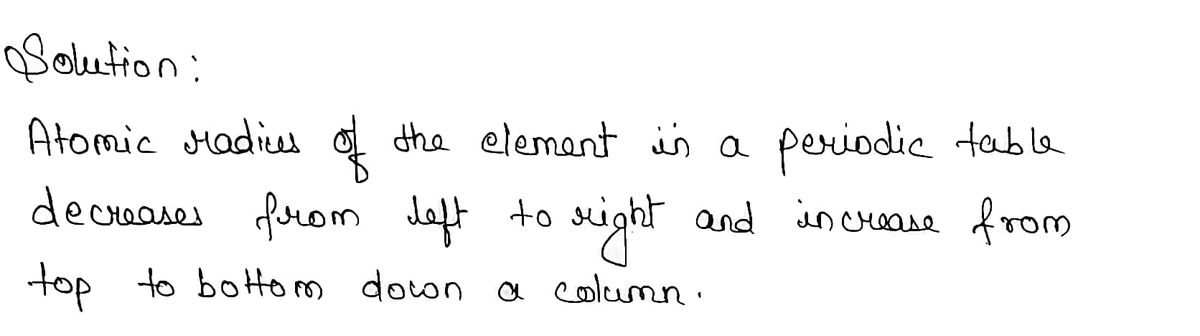 Solution:
Atomic radius of the element in a periodic table
decreases from left to right and increase from
top to bottom down a column.